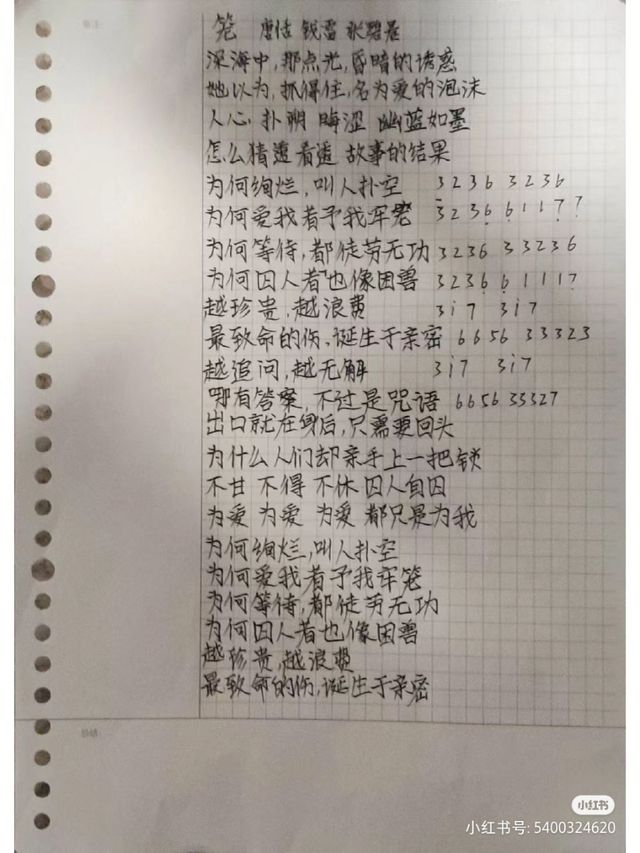 笼 唐恬 钱雷 张碧晨
深海中,那点光,昏暗的诱惑
她以为,抓得住,名为爱的泡沫
人心 扑朔 晦涩 幽蓝如墨
怎么猜透看透 故事的结果
为何绚烂,叫人扑空 3236 3236
为何爱我者予我牢笼 3236 6 1 1 7 7
为何等待,都徒劳无功 3236 33236
为何囚人者也像困兽 3236 6 1 1 1 7
越珍贵,越浪费 3i7 3i7
最致命的伤,诞生于亲密 6656 33323
越追问,越无解 3i7 3i7
哪有答案,不过是咒语 6656 33327
出口就在身后,只需要回头
为什么人们却亲手上一把锁
不甘 不得 不休 囚人自囚
为爱 为爱 为爱 都只是为我
为何绚烂,叫人扑空
为何爱我者予我牢笼
为何等待,都徒劳无功
为何囚人者也像困兽
越珍贵,越浪费
最致命的伤,诞生于亲密
总结
小红书
小红书号: 5400324620